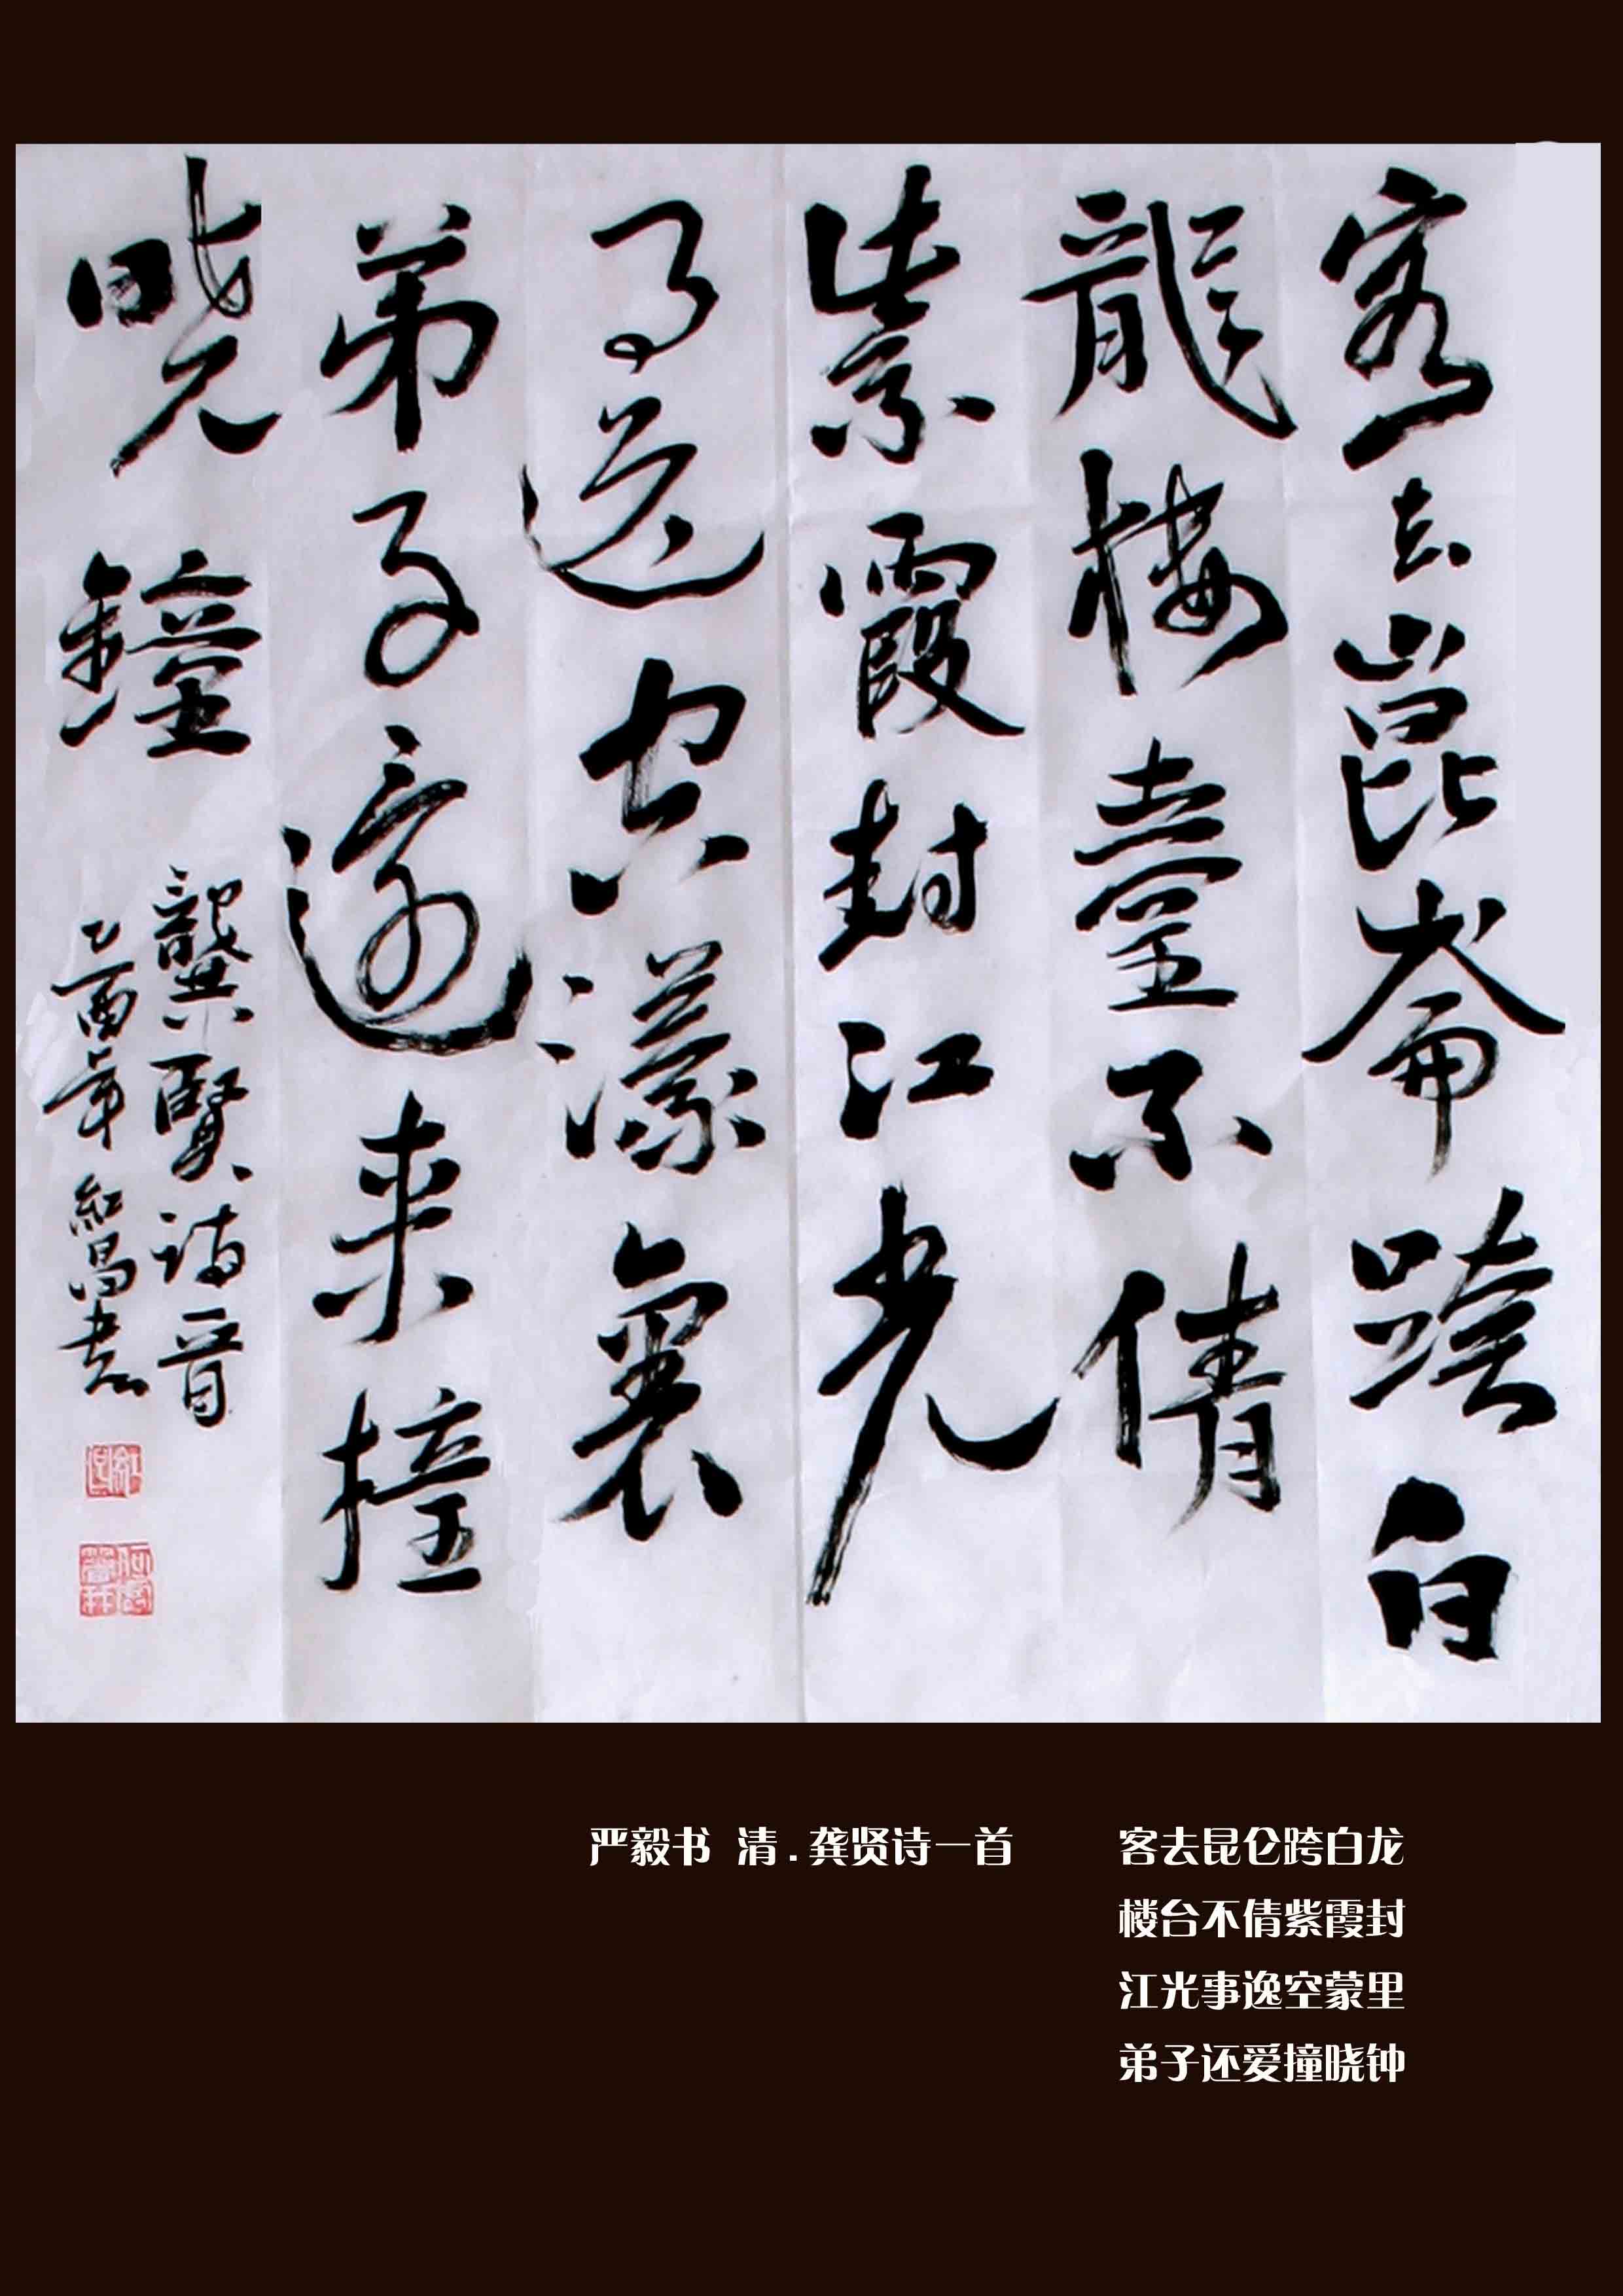 客去崑崙跨白
龍樓臺不倩
紫霞封江光
空濛裏
弟子還来撞
晓鐘
龔賢詩一首
乙酉年書
严毅书 清.龚贤诗一首
客去昆仑跨白龙
楼台不倩紫霞封
江光事逸空蒙里
弟子还爱撞晓钟